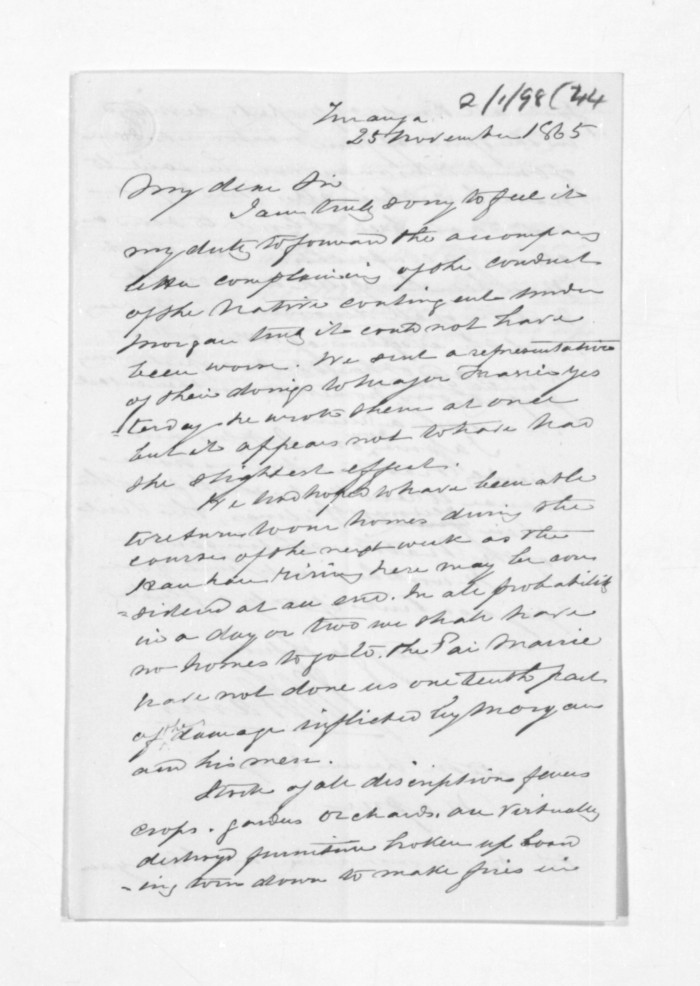 2/1/98 (44
Turanga.
25 November 1865
My dear Sir
I am truly sorry to feel it
my duty to forward the accompany
letter complaining of the conduct
of the Native contingent under
Morgan truly it could not have
been worse. We sent a representative
of their doings to Major Frazer yes
-terday he wrote them at once
but it appears not to have had
the slightest effect.
We had hoped to have been able
to return to our homes during the
course of the next week as the
Hau hau rising here may be con
=sidered at an end. In all probability
in a day or two we shall have
no homes to go to. The Pai Marrie
have not done us one tenth part
of the damage inflicted by Morgan
and his men.
Stock of all discriptions fences
crops. gardens orchards. are virtually
destroyd furniture broken up board
-ing torn down to make fires in